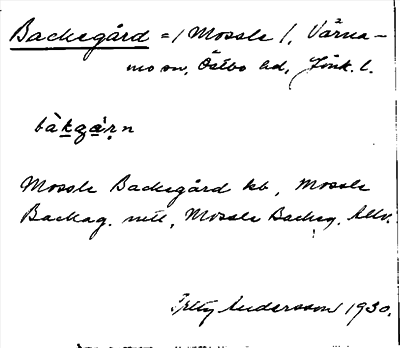 Backegård =/ Mossle /, Värna-
mo sn, Östbo hd, Jönk. l.
bàkgá̱ṛn
Mossle Backegård kb, Mossle
Backag. mtl, Mossle Backeg.
Andersson 1930.